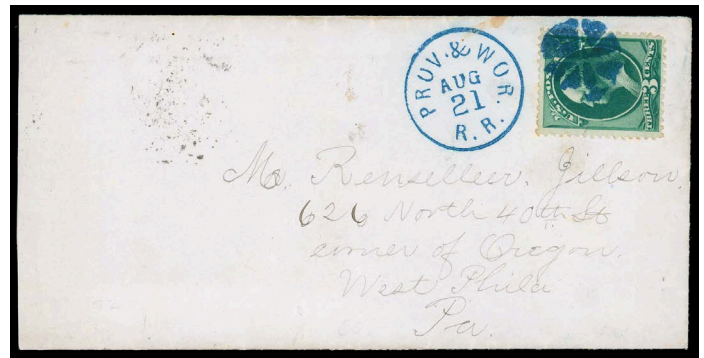 PROV. & WOR.
AUG
21
R. R.
Mr. Renselleer. Jillson.
626 North 40th St
corner of Oregon.
West Phila
Pa.